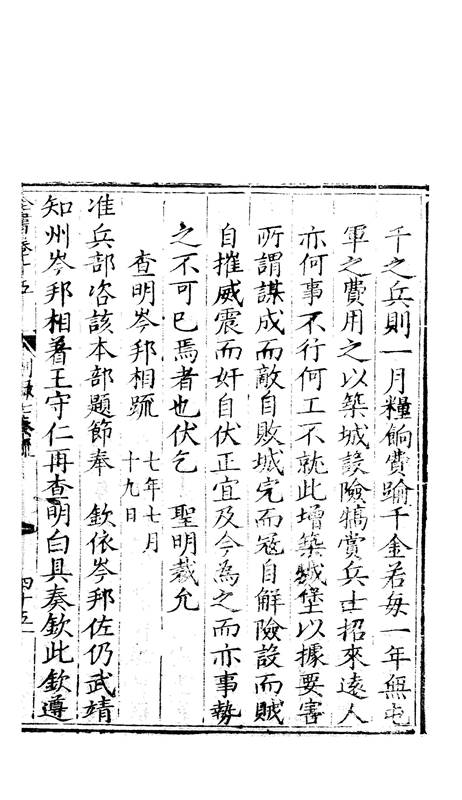 千之兵則一月糧餉費踰千金若每一年無屯
軍之費用之以築城設險犒賞兵士招來遠人
亦何事不行何工不就此增築城堡以據要害
所謂謀成而敵自敗城完而寇自解險設而賊
自摧威震而奸自伏正宜及今為之而亦事勢
之不可已焉者也伏乞　聖明裁允
查明岑邦相疏
七年七月
十九日
准兵部咨該本部題節奉　欽依岑邦佐仍武靖
知州岑邦相着王守仁再查明白具奏欽此欽遵
全書卷十五
別錄七奏疏
四十五